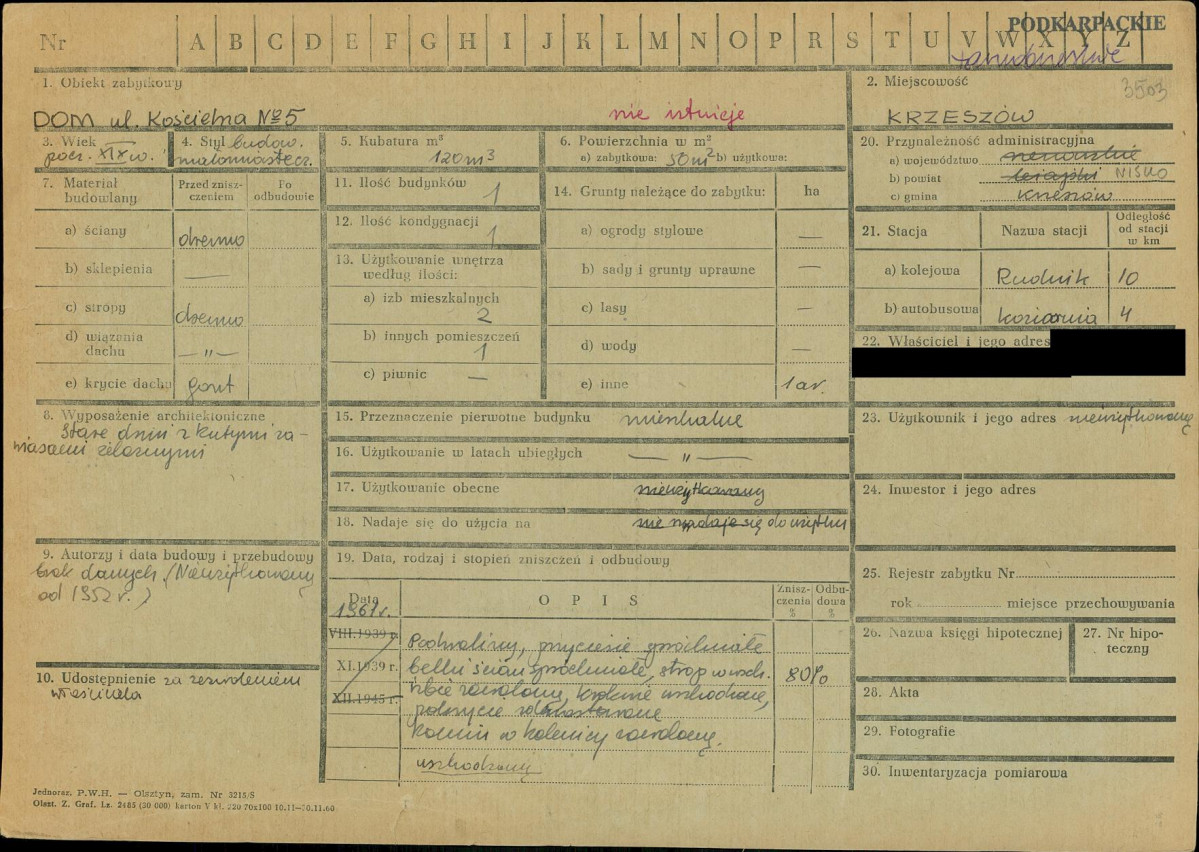 PODKARPACKIE
Nr A B C D E F G H I J K L M N O P R S T U V W X Y Z
3503
1. Obiekt zabytkowy
DOM ul. Kościelna №5
nie istnieje
2. Miejscowość
KRZESZÓW
3. Wiek
pocz. XIX w.
4. Styl budow.
małomiastecz.
5. Kubatura m³
120 m³
6. Powierzchnia w m²
a) zabytkowa: 50 m² b) użytkowa:
7. Materiał budowlany
Przed zniszczeniem
Po odbudowie
a) ściany drewno
b) sklepienia —
c) stropy drewno
d) wiązania dachu —„—
e) krycie dachu gont
8. Wyposażenie architektoniczne
Stare drzwi z kutymi za-
wiasami żelaznymi
9. Autorzy i data budowy i przebudowy
brak danych. (Nieużytkowany
od 1952 r.)
10. Udostępnienie za zezwoleniem
właściciela
11. Ilość budynków 1
12. Ilość kondygnacji 1
13. Użytkowanie wnętrza
według ilości:
a) izb mieszkalnych
2
b) innych pomieszczeń
1
c) piwnic —
14. Grunty należące do zabytku: ha
a) ogrody stylowe —
b) sady i grunty uprawne —
c) lasy —
d) wody —
e) inne 1 ar.
15. Przeznaczenie pierwotne budynku mieszkalne
16. Użytkowanie w latach ubiegłych — „ —
17. Użytkowanie obecne nieużytkowany
18. Nadaje się do użycia na nie nadaje się do użytku
19. Data, rodzaj i stopień zniszczeń i odbudowy
Data
O P I S
Zniszczenia %
Odbudowa %
1961r.
VIII.1939 r.
XI.1939 r.
XII.1945 r.
Podwaliny, przyciesie spróchniałe
belki ścian spróchniałe, strop w wsch.
izbie zawalony,
pokrycie
komin w kalenicy zawalony.
uszkodzony
80%
20. Przynależność administracyjna
a) województwo rzeszowskie
b) powiat leżajski NISKO
c) gmina Krzeszów
21. Stacja
Nazwa stacji
Odległość od stacji w km
a) kolejowa Rudnik 10
b) autobusowa Koziarnia 4
22. Właściciel i jego adres
23. Użytkownik i jego adres nieużytkowany
24. Inwestor i jego adres
25. Rejestr zabytku Nr
rok miejsce przechowywania
26. Nazwa księgi hipotecznej
27. Nr hipoteczny
28. Akta
29. Fotografie
30. Inwentaryzacja pomiarowa
Jednoraz. P.W.H. — Olsztyn, zam. Nr 3215/S
Olszt. Z. Graf. Lz. 2485 (20 000) karton V kl. 220 70x100 10.11—30.11.60